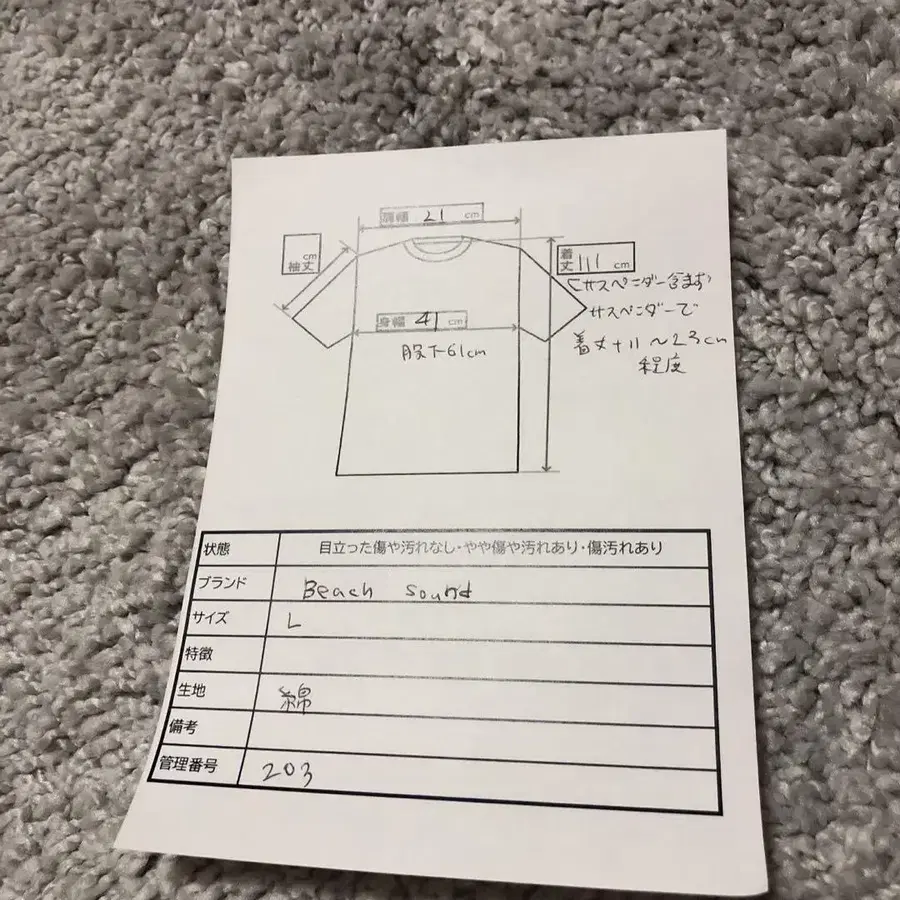 肩幅 21 cm
cm
袖丈
着丈 111 cm
(サスペンダー含まず)
サスペンダーで
着丈+11〜23cm
程度
身幅 41 cm
股下61cm
状態 目立った傷や汚れなし・やや傷や汚れあり・傷汚れあり
ブランド Beach sound
サイズ L
特徴
生地 綿
備考
管理番号 203